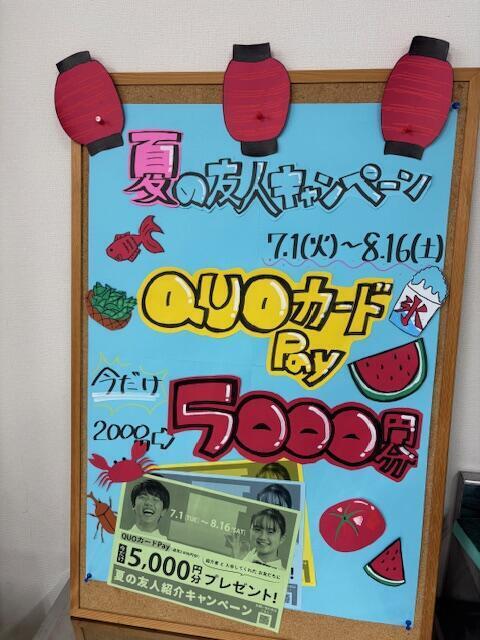 夏の友人キャンペーン
7.1(火)～8.16(土)
QUOカード
Pay
氷
今だけ
5000円分
7.1 [TUE] ～ 8.16 [SAT]
QUOカードPay
5,000円分プレゼント!
夏の友人紹介キャンペーン